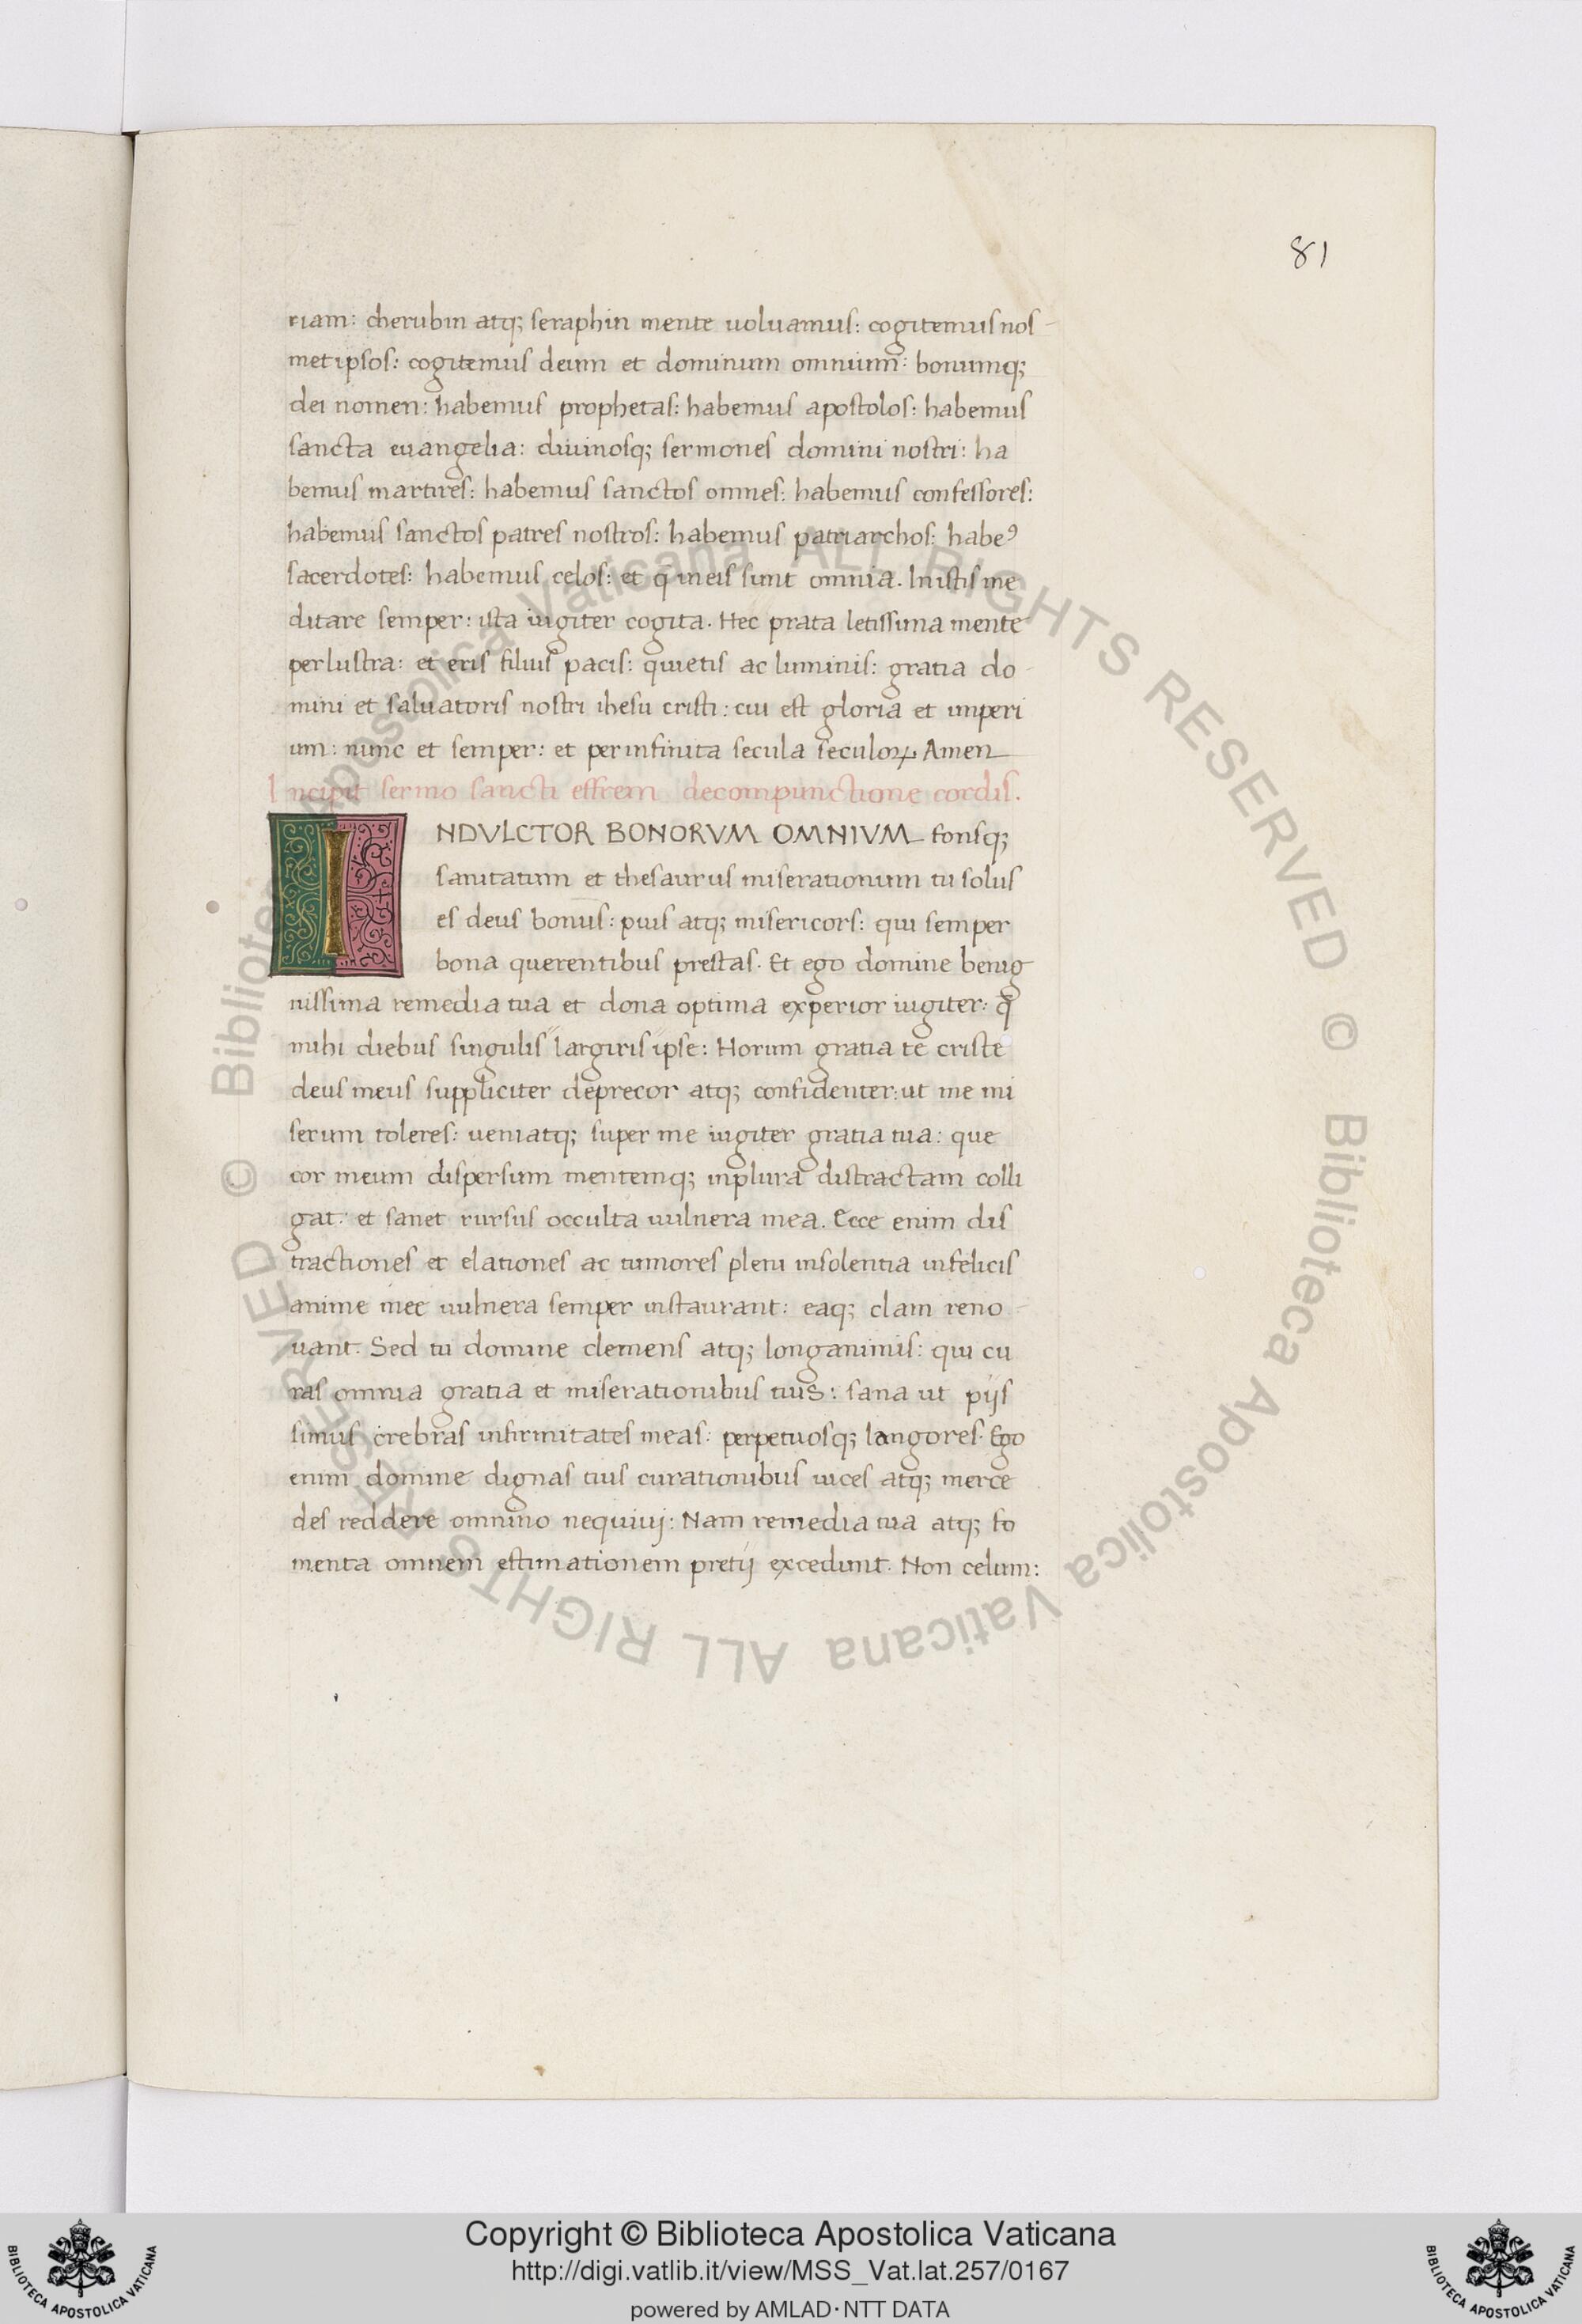 81
riam: cherubin atq; seraphin mente uoluamus: cogitemus nos-
met ipsos: cogitemus deum et dominum omnium: bonumq;
dei nomen: habemus prophetas: habemus apostolos: habemus
sancta euangelia: diuinosq; sermones domini nostri: ha
bemus martires: habemus sanctos omnes: habemus confessores:
habemus sanctos patres nostros: habemus patriarchos: habeꝰ
sacerdotes: habemus celos: et q̄ in eis sunt omnia. In istis me
ditare semper: ista iugiter cogita. Hec prata letissima mente
perlustra: et eris filius pacis: quietis ac luminis: gratia do-
mini et saluatoris nostri ihesu cristi: cui est gloria et imperi
um: nunc et semper: et per infinita secula seculoꝝ Amen
Incipit sermo sancti effrem decompunctione cordis.
INDVLCTOR BONORVM OMNIVM fonsq;
sanitatum et thesaurus miserationum tu solus
es deus bonus: pius atq; misericors: qui semper
bona querentibus prestas. Et ego domine benig
nissima remedia tua et dona optima experior iugiter: q̄
mihi diebus singulis largiris ipse: Horum gratia te criste
deus meus suppliciter deprecor atq; confidenter: ut me mi
serum toleres: ueniatq; super me iugiter gratia tua: que
cor meum dispersum mentemq; inplura distractam colli
gat: et sanet rursus occulta uulnera mea. Ecce enim dis
tractiones et elationes ac tumores pleni insolentia infelicis
anime mee uulnera semper instaurant: eaq; clam reno-
uant. Sed tu domine clemens atq; longanimis: qui cu
ras omnia gratia et miserationibus tuis: sana ut pijs
simus crebras infirmitates meas: perpetuosq; langores. Ego
enim domine dignas tuis curationibus uices atq; merce
des reddere omnino nequiuij: Nam remedia tua atq; fo
menta omnem estimationem pretij excedunt. Non celum:
© Biblioteca Apostolica Vaticana ALL RIGHTS RESERVED © Biblioteca Apostolica Vaticana ALL RIGHTS RESERVED
Copyright © Biblioteca Apostolica Vaticana
http://digi.vatlib.it/view/MSS_Vat.lat.257/0167
powered by AMLAD·NTT DATA
BIBLIOTECA APOSTOLICA VATICANA
BIBLIOTECA APOSTOLICA VATICANA